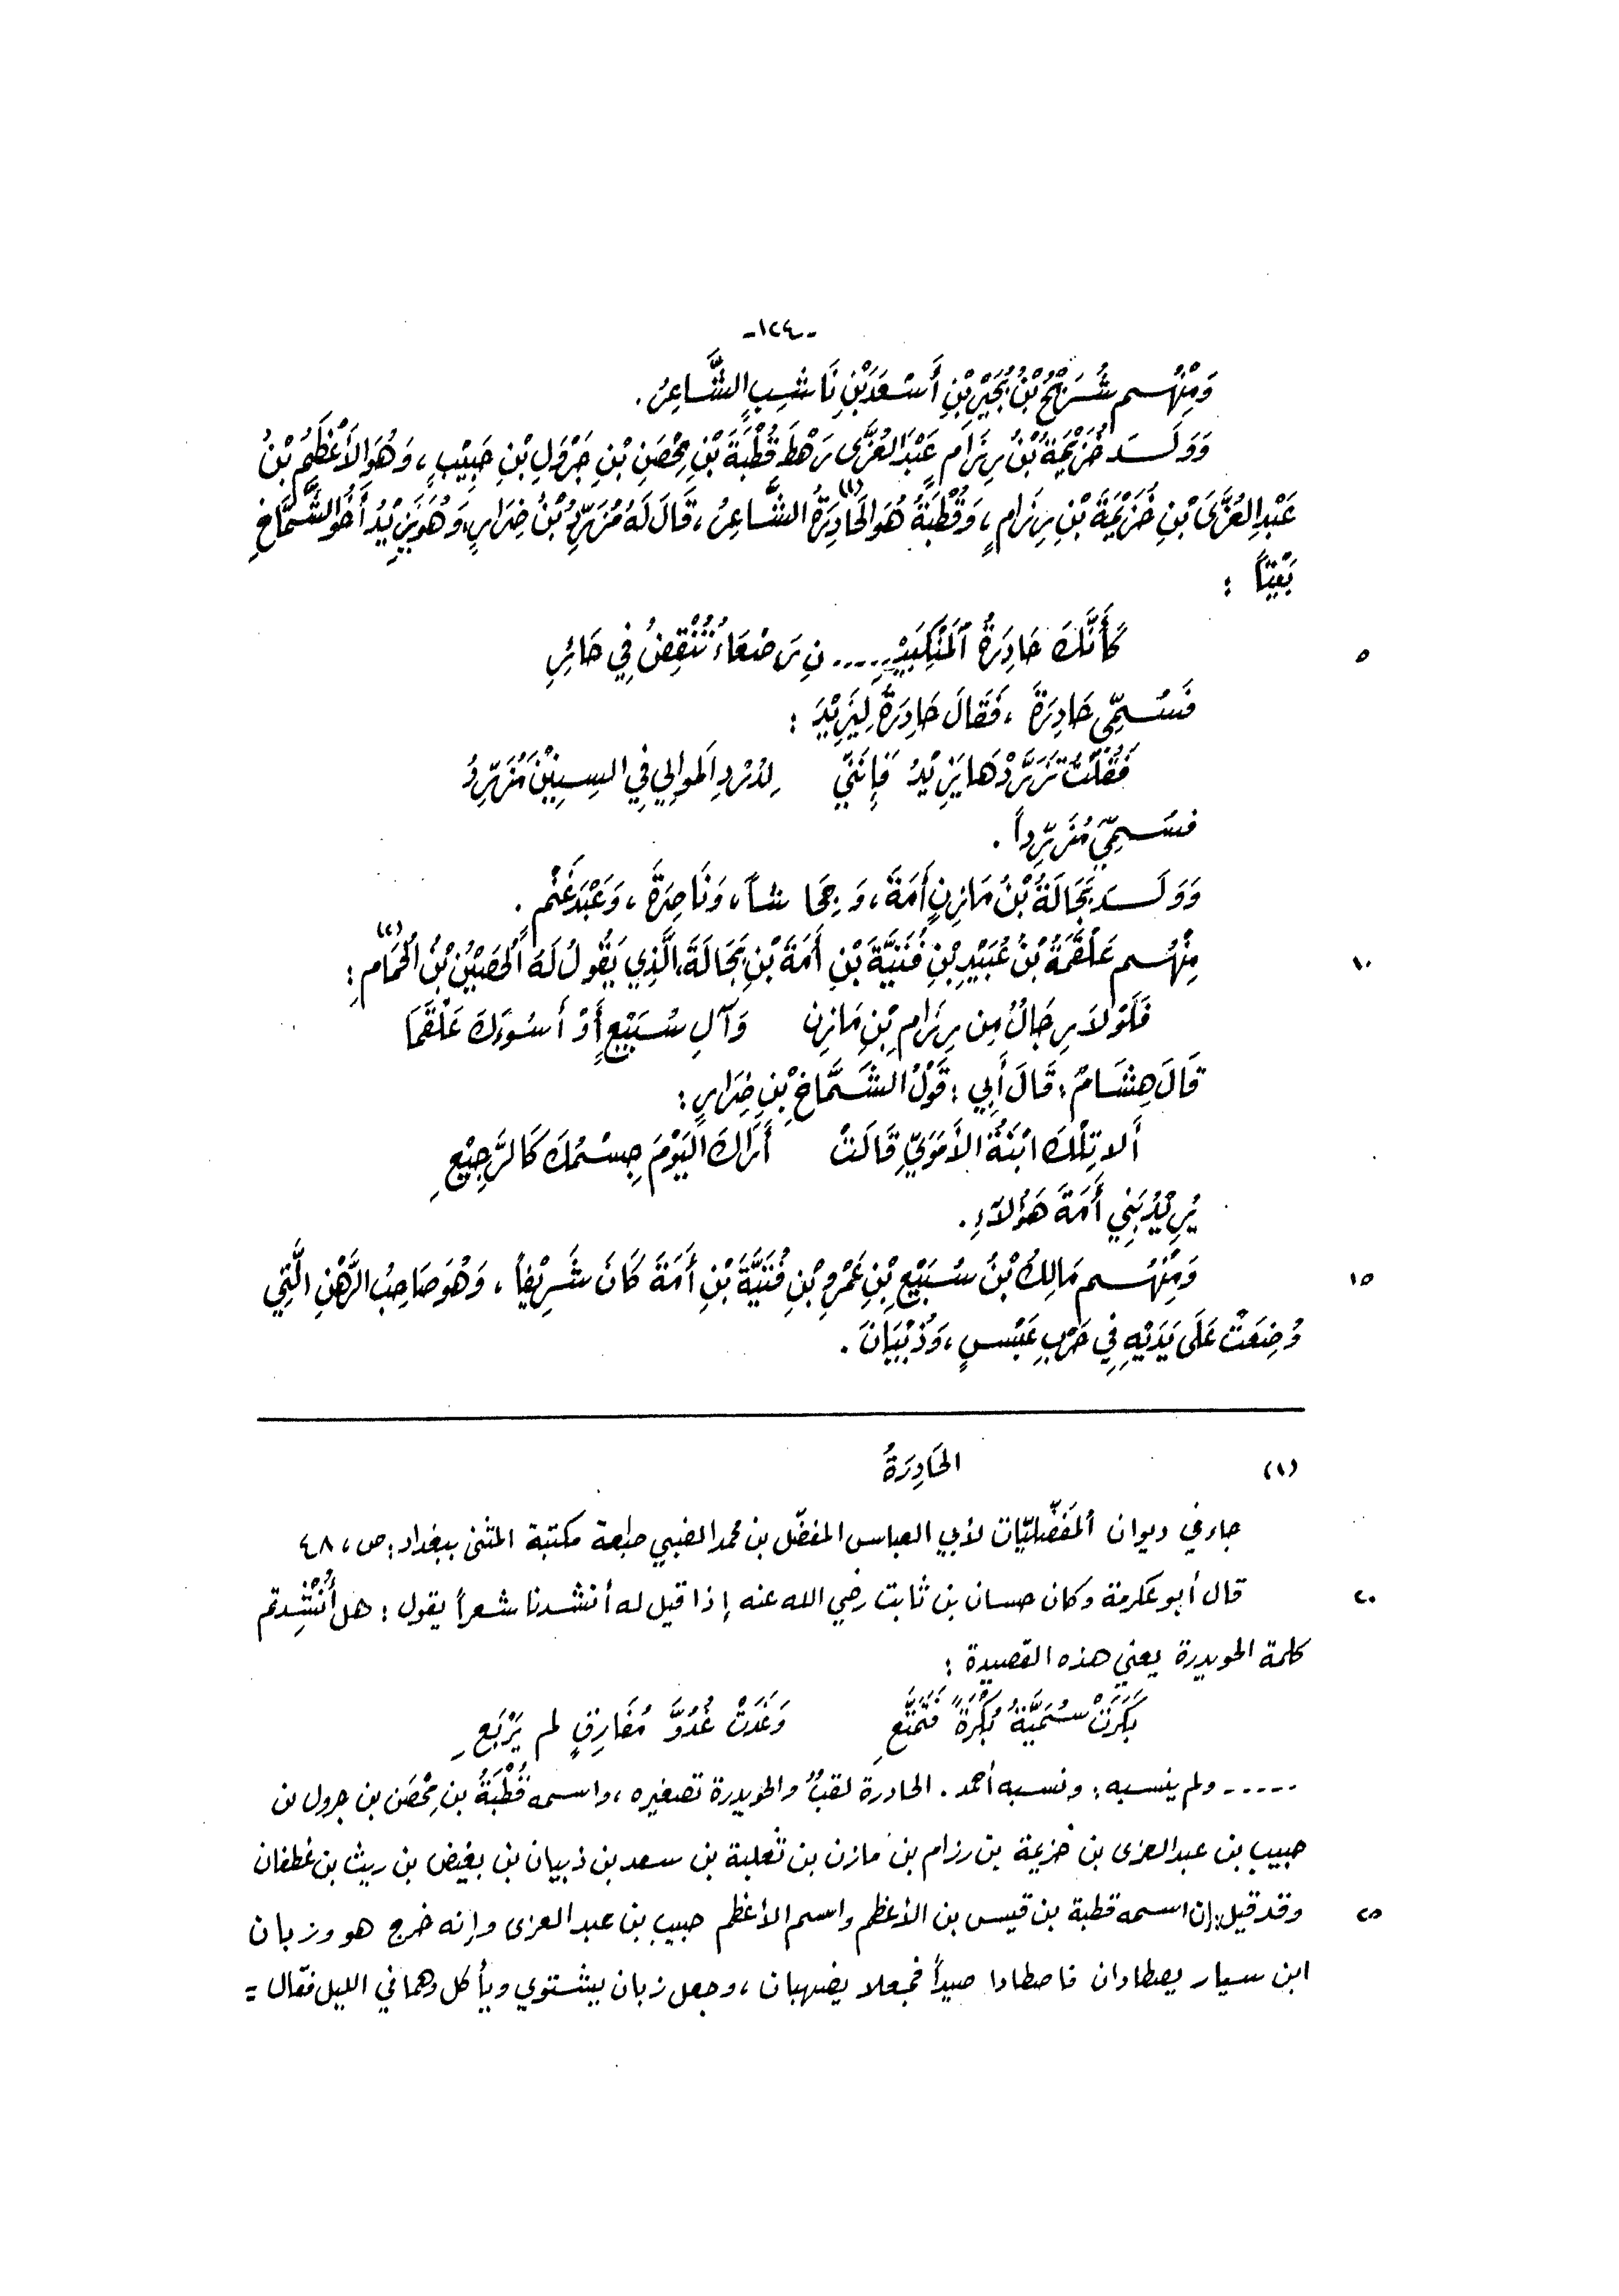 -١٢٤-
وَمِنْهُم شُرَيْحُ بْنُ بُجَيْرِ بْنِ أَسْعَدَ بْنِ نَاشِبٍ الشَّاعِرُ.
وَوَلَدَ خُزَيْمَةُ بْنُ رِزَامٍ عَبْدَ العُزَّى رَهْطَ قُطْبَةَ بْنِ مِحْصَنِ بْنِ جَرْوَلِ بْنِ حَبِيْبٍ، وَهُوَ الأَعْظَمُ بْنُ
عَبْدِ العُزَّى بْنِ خُزَيْمَةَ بْنِ رِزَامٍ، وَقُطْبَةُ هُوَ الحَادِرَةُ (١) الشَّاعِرُ، قَالَ لَهُ مُزَرِّدُ بْنُ ضِرَارٍ، وَهُوَ يَزِيْدُ أَخُو الشَّمَّاخِ
بَيْتاً :
كَأَنَّكَ حَادِرَةُ المَنْكِبَيْـ ..... ـنِ رَصْعَاءُ تُنْقِضُ فِي حَائِرِ
٥
فَسُمِّيَ حَادِرَةَ، فَقَالَ حَادِرَةُ لِيَزِيْدَ :
فَقُلْتُ تَزَرَّدْهَا يَزِيْدُ فَإِنَّنِي لِدُرْدِ المَوَالِي فِي السِنِيْنَ مُزَرِّدُ
فسُمِّيَ مُزَرِّداً .
وَوَلَدَ بَجَالَةُ بْنُ مَازِنٍ أَمَةَ، وَجِحَاشاً، وَنَاصِرَةَ، وَعَبْدَ غَنْمٍ .
مِنْهُم عَلْقَمَةُ بْنُ عُبَيْدِ بْنِ قُنَيَّةَ بْنِ أَمَةَ بْنِ بَجَالَةَ، الَّذِي يَقُولُ لَهُ الحُصَيْنُ بْنُ الحُمَامِ (٢) :
١٠
فَلَوْلاَ رِجَالٌ مِن رِزَامِ بْنِ مَازِنٍ وَآلِ سُبَيْعٍ أَوْ أَسُوءَكَ عَلْقَمَا
قَالَ هِشَامٌ : قَالَ أَبِي : قَوْلُ الشَّمَّاخِ بْنِ ضِرَارٍ :
أَلا تِلْكَ ابْنَةُ الأَمَوِيِّ قَالَتْ أَرَاكَ اليَوْمَ جِسْمُكَ كَالرَّجِيْعِ
يُرِيْدُ بَنِي أَمَةَ هَؤُلاَءِ .
وَمِنْهُم مَالِكُ بْنُ سُبَيْعِ بْنِ عَمْرِو بْنِ قُنَيَّةَ بْنِ أَمَةَ كَانَ شَرِيْفاً، وَهُوَ صَاحِبُ الرَّهْنِ الَّتِي
١٥
وُضِعَتْ عَلَى يَدَيْهِ فِي حَرْبِ عَبْسٍ، وَذُبْيَانَ .
(١) الحَادِرَةُ
جاء في ديوان المُفَضَّلِيّات لأبي العباس المفضّل بن محمد الضبي طبعة مكتبة المثنى ببغداد : ص، ٤٨
قال أبو عكرمة وكان حسان بن ثابت رضي الله عنه إذا قيل له أنشدنا شعراً يقول : هل أُنْشِدتم
٢٠
كلمة الحويدرة يعني هذه القصيدة :
بَكَرَتْ سُمَيَّةُ بُكْرَةً فَتَمَتَّعِ وَغَدَتْ غُدُوَّ مُفَارِقٍ لم يَرْبَعِ
..... ولم ينسبه : ونسبه أحمد . الحادرة لقبٌ والحويدرة تصغيره، واسمه قُطْبَةُ بن مِحْصَن بن جرول بن
حبيب بن عبد العزى بن خزيمة بن رزام بن مازن بن ثعلبة بن سعد بن ذبيان بن بغيض بن ريث بن غطفان
وقد قيل : إن اسمه قطبة بن قيس بن الأعظم واسم الأعظم حبيب بن عبد العزى وإنه خرج هو وزبان
٢٥
ابن سيار يصطادان فاصطادا صيداً فجعلا يضهبان، وجعل زبان يشتوي ويأكل وهما في الليل فقال =